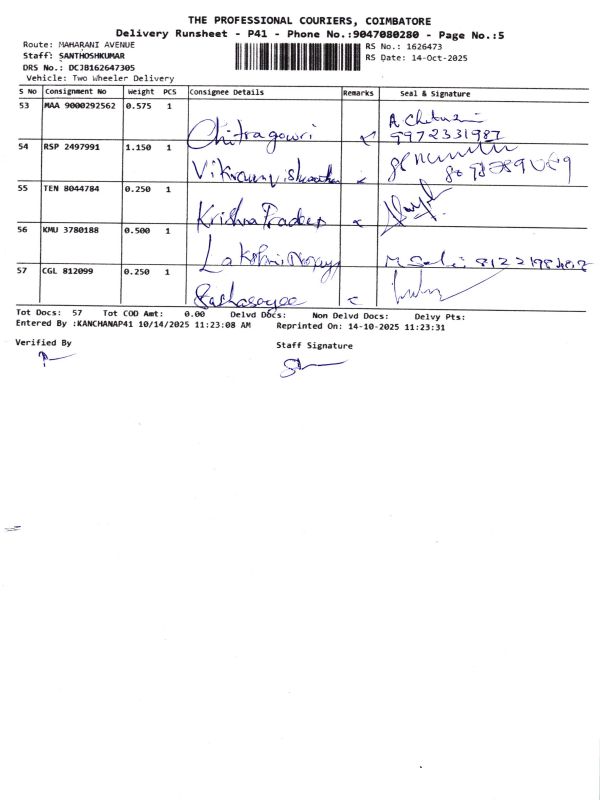 THE PROFESSIONAL COURIERS, COIMBATORE
Delivery Runsheet - P41 - Phone No.:9047080280 - Page No.:5
Route: MAHARANI AVENUE
RS No.: 1626473
Staff: SANTHOSHKUMAR
RS Date: 14-Oct-2025
DRS No.: DCJB162647305
Vehicle: Two Wheeler Delivery
S No Consignment No Weight PCS Consignee Details Remarks Seal & Signature
53 MAA 9000292562 0.575 1
Chitragowri
9972331987
54 RSP 2497991 1.150 1
55 TEN 8044784 0.250 1
Krishna Pradeep
56 KMU 3780188 0.500 1
Lakshmi
57 CGL 812099 0.250 1
Tot Docs: 57 Tot COD Amt: 0.00 Delvd Docs: Non Delvd Docs: Delvy Pts:
Entered By :KANCHANAP41 10/14/2025 11:23:08 AM Reprinted On: 14-10-2025 11:23:31
Verified By
Staff Signature